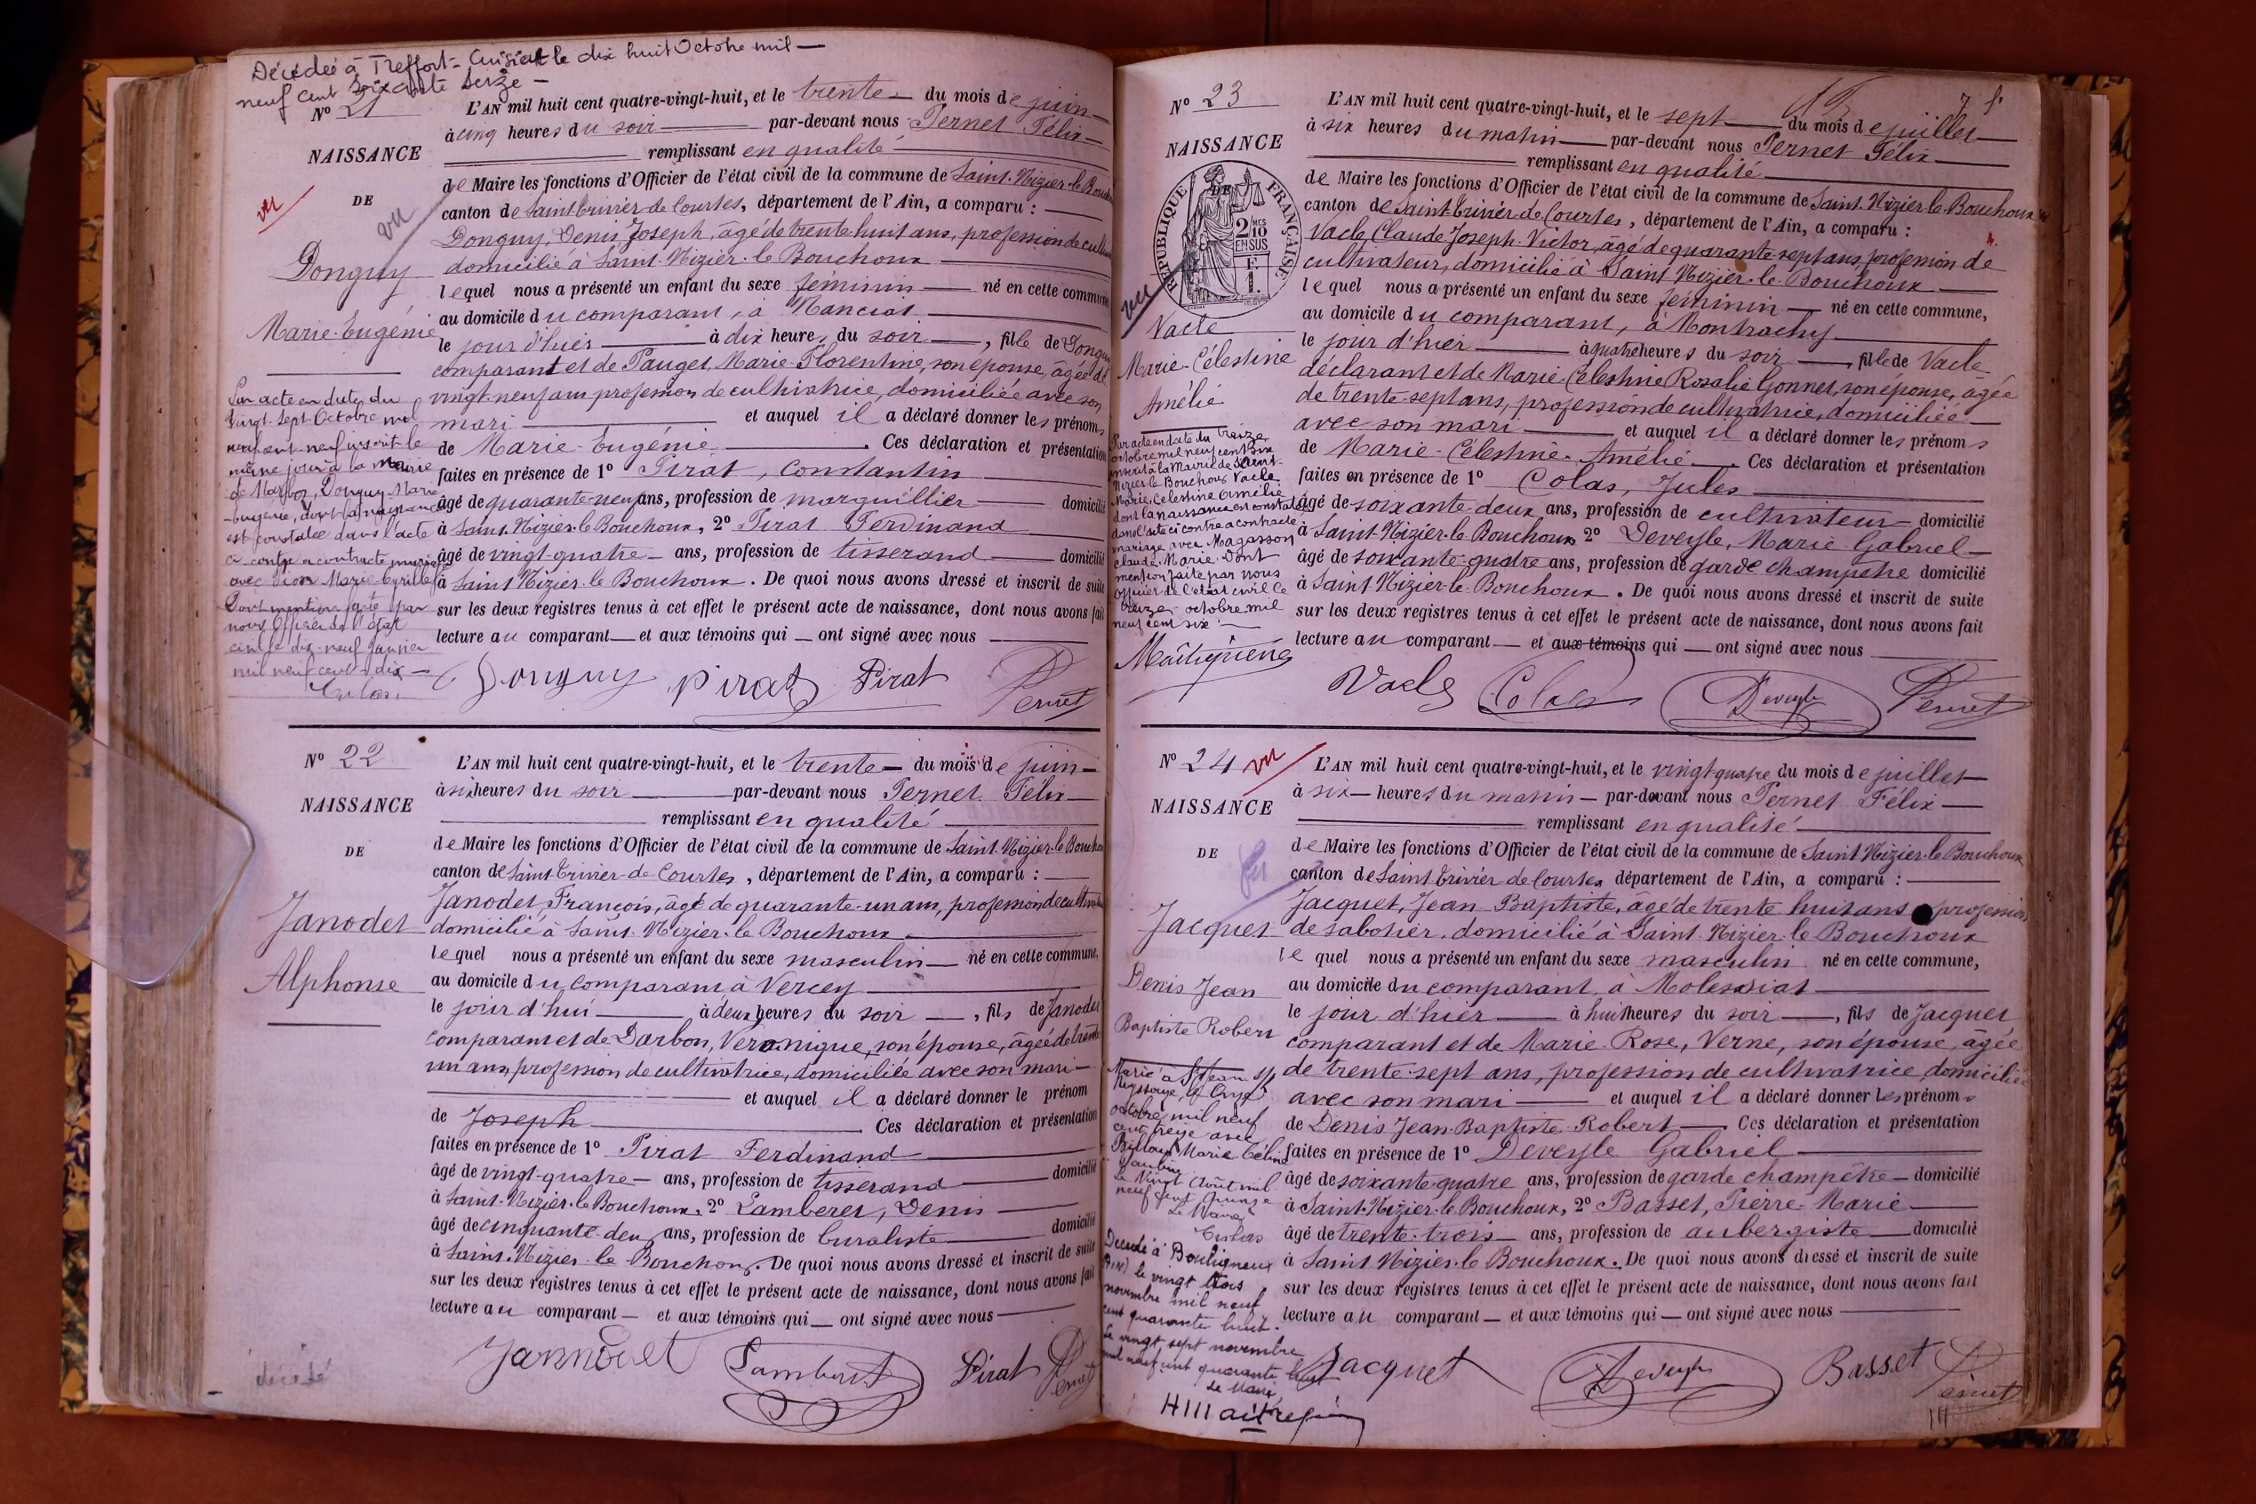 Décédée à Treffort-Cuisiat le dix huit Octobre mil —
neuf cent soixante seize —
N° 21
NAISSANCE
DE
vu
vu
Donguy
Marie-Eugénie
Par acte en date du
vingt-sept Octobre mil
neuf cent neuf inscrit le
même jour à la Mairie
de Marboz, Donguy Marie
Eugénie, dont la naissance
est constatée dans l'acte
ci-contre a contracté mariage
avec Marie Cyrille
Dont mention faite par
nous Officier de l'état
civil le dix-neuf Janvier
mil neuf cent dix —
L'AN mil huit cent quatre-vingt-huit, et le trente — du mois de juin —
à cinq heures du soir — par-devant nous Pernet Félix —
remplissant en qualité
de Maire les fonctions d'Officier de l'état civil de la commune de Saint-Nizier-le-Bouchoux
canton de Saint-Trivier-de-Courtes, département de l'Ain, a comparu :
Donguy, Denis Joseph, âgé de trente huit ans, profession de cultivateur
domicilié à Saint-Nizier-le-Bouchoux
lequel nous a présenté un enfant du sexe féminin — né en cette commune
au domicile du comparant, à Manciat
le jour d'hier — à dix heures du soir —, fille de Donguy
comparant et de Pauget, Marie-Florentine, son épouse, âgée de
vingt-neuf ans profession de cultivatrice, domiciliée avec son
mari — et auquel il a déclaré donner les prénoms
de Marie-Eugénie. Ces déclaration et présentation
faites en présence de 1° Pirat, Constantin
âgé de quarante-neuf ans, profession de marguillier — domicilié
à Saint-Nizier-le-Bouchoux, 2° Pirat Ferdinand
âgé de vingt-quatre — ans, profession de tisserand — domicilié
à Saint-Nizier-le-Bouchoux. De quoi nous avons dressé et inscrit de suite
sur les deux registres tenus à cet effet le présent acte de naissance, dont nous avons fait
lecture au comparant — et aux témoins qui — ont signé avec nous
Donguy Pirat Pirat Pernet
N° 22
NAISSANCE
DE
Janodet
Alphonse
décédé
L'AN mil huit cent quatre-vingt-huit, et le trente — du mois de juin —
à six heures du soir — par-devant nous Pernet Félix —
remplissant en qualité
de Maire les fonctions d'Officier de l'état civil de la commune de Saint-Nizier-le-Bouchoux
canton de Saint-Trivier-de-Courtes, département de l'Ain, a comparu :
Janodet, François, âgé de quarante-un ans, profession de cultivateur
domicilié à Saint-Nizier-le-Bouchoux
lequel nous a présenté un enfant du sexe masculin — né en cette commune,
au domicile du comparant à Vercey
le jour d'hui — à deux heures du soir —, fils de Janodet
comparant et de Darbon, Véronique, son épouse, âgée de trente
un ans, profession de cultivatrice, domiciliée avec son mari —
et auquel il a déclaré donner le prénom
de Joseph. Ces déclaration et présentation
faites en présence de 1° Pirat Ferdinand
âgé de vingt-quatre — ans, profession de tisserand — domicilié
à Saint-Nizier-le-Bouchoux, 2° Lamberet, Denis
âgé de cinquante-deux ans, profession de buraliste — domicilié
à Saint-Nizier-le-Bouchoux. De quoi nous avons dressé et inscrit de suite
sur les deux registres tenus à cet effet le présent acte de naissance, dont nous avons fait
lecture au comparant — et aux témoins qui — ont signé avec nous
Jannodet Lamberet Pirat Pernet
N° 23
NAISSANCE
DE
RÉPUBLIQUE FRANÇAISE
2 MES 10 EN SUS
F. 1.
vu
Vacle
Marie-Célestine
Amélie
Par acte en date du treize
octobre mil neuf cent six
inscrit à la Mairie de Saint-
Nizier-le-Bouchoux Vacle
Marie, Célestine Amélie
dont la naissance est constatée
dans l'acte ci contre a contracté
mariage avec Magasson
Claude Marie. Dont
mention faite par nous
officier de l'état civil ce
treize octobre mil
neuf cent six
L'AN mil huit cent quatre-vingt-huit, et le sept — du mois de juillet
à six heures du matin — par-devant nous Pernet Félix
remplissant en qualité
de Maire les fonctions d'Officier de l'état civil de la commune de Saint-Nizier-le-Bouchoux
canton de Saint-Trivier-de-Courtes, département de l'Ain, a comparu :
Vacle, Claude Joseph-Victor, âgé de quarante-sept ans, profession de
cultivateur, domicilié à Saint-Nizier-le-Bouchoux
lequel nous a présenté un enfant du sexe féminin — né en cette commune,
au domicile du comparant, à Montrachy
le jour d'hier — à quatre heures du soir —, fille de Vacle
déclarant et de Marie-Célestine Rosalie Gonnet, son épouse, âgée
de trente-sept ans, profession de cultivatrice, domiciliée
avec son mari — et auquel il a déclaré donner les prénoms
de Marie-Célestine-Amélie. Ces déclaration et présentation
faites en présence de 1° Colas, Jules
âgé de soixante-deux ans, profession de cultivateur — domicilié
à Saint-Nizier-le-Bouchoux 2° Deveyle, Marie-Gabriel
âgé de soixante-quatre ans, profession de garde champêtre domicilié
à Saint-Nizier-le-Bouchoux. De quoi nous avons dressé et inscrit de suite
sur les deux registres tenus à cet effet le présent acte de naissance, dont nous avons fait
lecture au comparant — et aux témoins qui — ont signé avec nous
Vacle Colas Deveyle Pernet
N° 24
vu
NAISSANCE
DE
Jacquet
Denis Jean
Baptiste Robert
Marié à St Jean s/
Reyssouze, le
octobre mil neuf
cent treize avec
Marie Céline
Le vingt Août mil
neuf cent quinze
Le Maire
Décédé à Bouligneux
(Ain) le vingt trois
novembre mil neuf
cent quarante huit.
Le vingt sept novembre
mil neuf cent quarante huit
Le Maire
L'AN mil huit cent quatre-vingt-huit, et le vingt-quatre du mois de juillet
à six — heures du matin — par-devant nous Pernet Félix
remplissant en qualité
de Maire les fonctions d'Officier de l'état civil de la commune de Saint-Nizier-le-Bouchoux
canton de Saint-Trivier de Courtes département de l'Ain, a comparu :
Jacquet, Jean-Baptiste, âgé de trente huit ans profession
de sabotier, domicilié à Saint-Nizier-le-Bouchoux
lequel nous a présenté un enfant du sexe masculin né en cette commune,
au domicile du comparant, à Molessiat
le jour d'hier — à huit heures du soir —, fils de Jacquet
comparant et de Marie-Rose, Verne, son épouse, âgée
de trente-sept ans, profession de cultivatrice, domiciliée
avec son mari — et auquel il a déclaré donner les prénoms
de Denis Jean-Baptiste-Robert. Ces déclaration et présentation
faites en présence de 1° Deveyle Gabriel
âgé de soixante-quatre ans, profession de garde champêtre — domicilié
à Saint-Nizier-le-Bouchoux, 2° Basset, Pierre-Marie
âgé de trente-trois — ans, profession de aubergiste — domicilié
à Saint-Nizier-le-Bouchoux. De quoi nous avons dressé et inscrit de suite
sur les deux registres tenus à cet effet le présent acte de naissance, dont nous avons fait
lecture au comparant — et aux témoins qui — ont signé avec nous
Jacquet Deveyle Basset Pernet